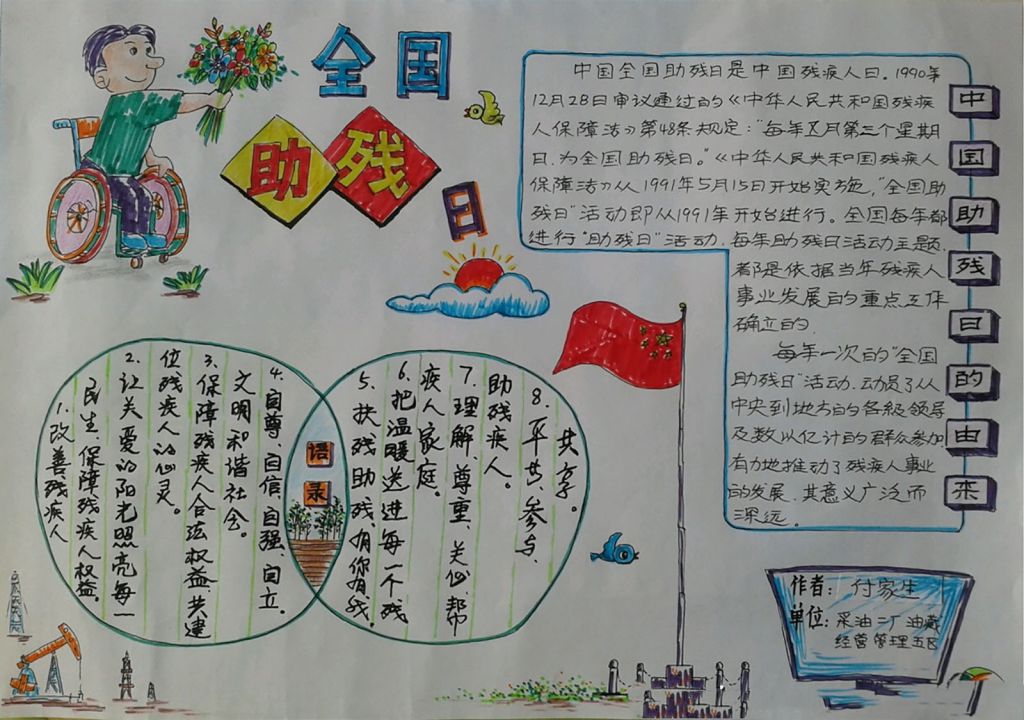 全国
助残
日
中国全国助残日是中国残疾人日。1990年
12月28日审议通过的《中华人民共和国残疾
人保障法》第48条规定:"每年五月第三个星期
日,为全国助残日。"《中华人民共和国残疾人
保障法》从1991年5月15日开始实施,"全国助
残日"活动即从1991年开始进行。全国每年都
进行"助残日"活动,每年助残日活动主题,
都是依据当年残疾人
事业发展的重点工作
确立的.
每年一次的"全国
助残日"活动.动员了从
中央到地方的各级领导
及数以亿计的群众参加
有力地推动了残疾人事业
的发展.其意义广泛而
深远。
中国助残日的由来
1.改善残疾人
民生、保障残疾人权益。
2.让关爱的阳光照亮每一
位残疾人的心灵。
3.保障残疾人合法权益共建
文明和谐社会。
4.自尊、自信自强、自立。
语录
5.扶残助残,有你有我。
6.把温暖送进每一个残
疾人家庭。
7.理解、尊重、关心、帮
助残疾人。
8.平共、参与、
共享。
作者:付家生
单位:采油二厂油藏
经营管理五区